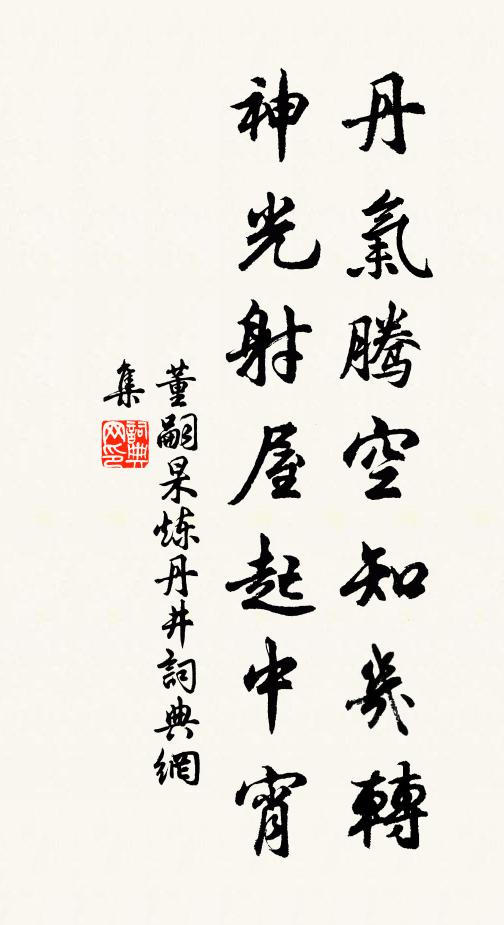 丹氣騰空知幾轉
神光射屋起中宵
董嗣杲炼丹井詞典網
集
詞典
网印